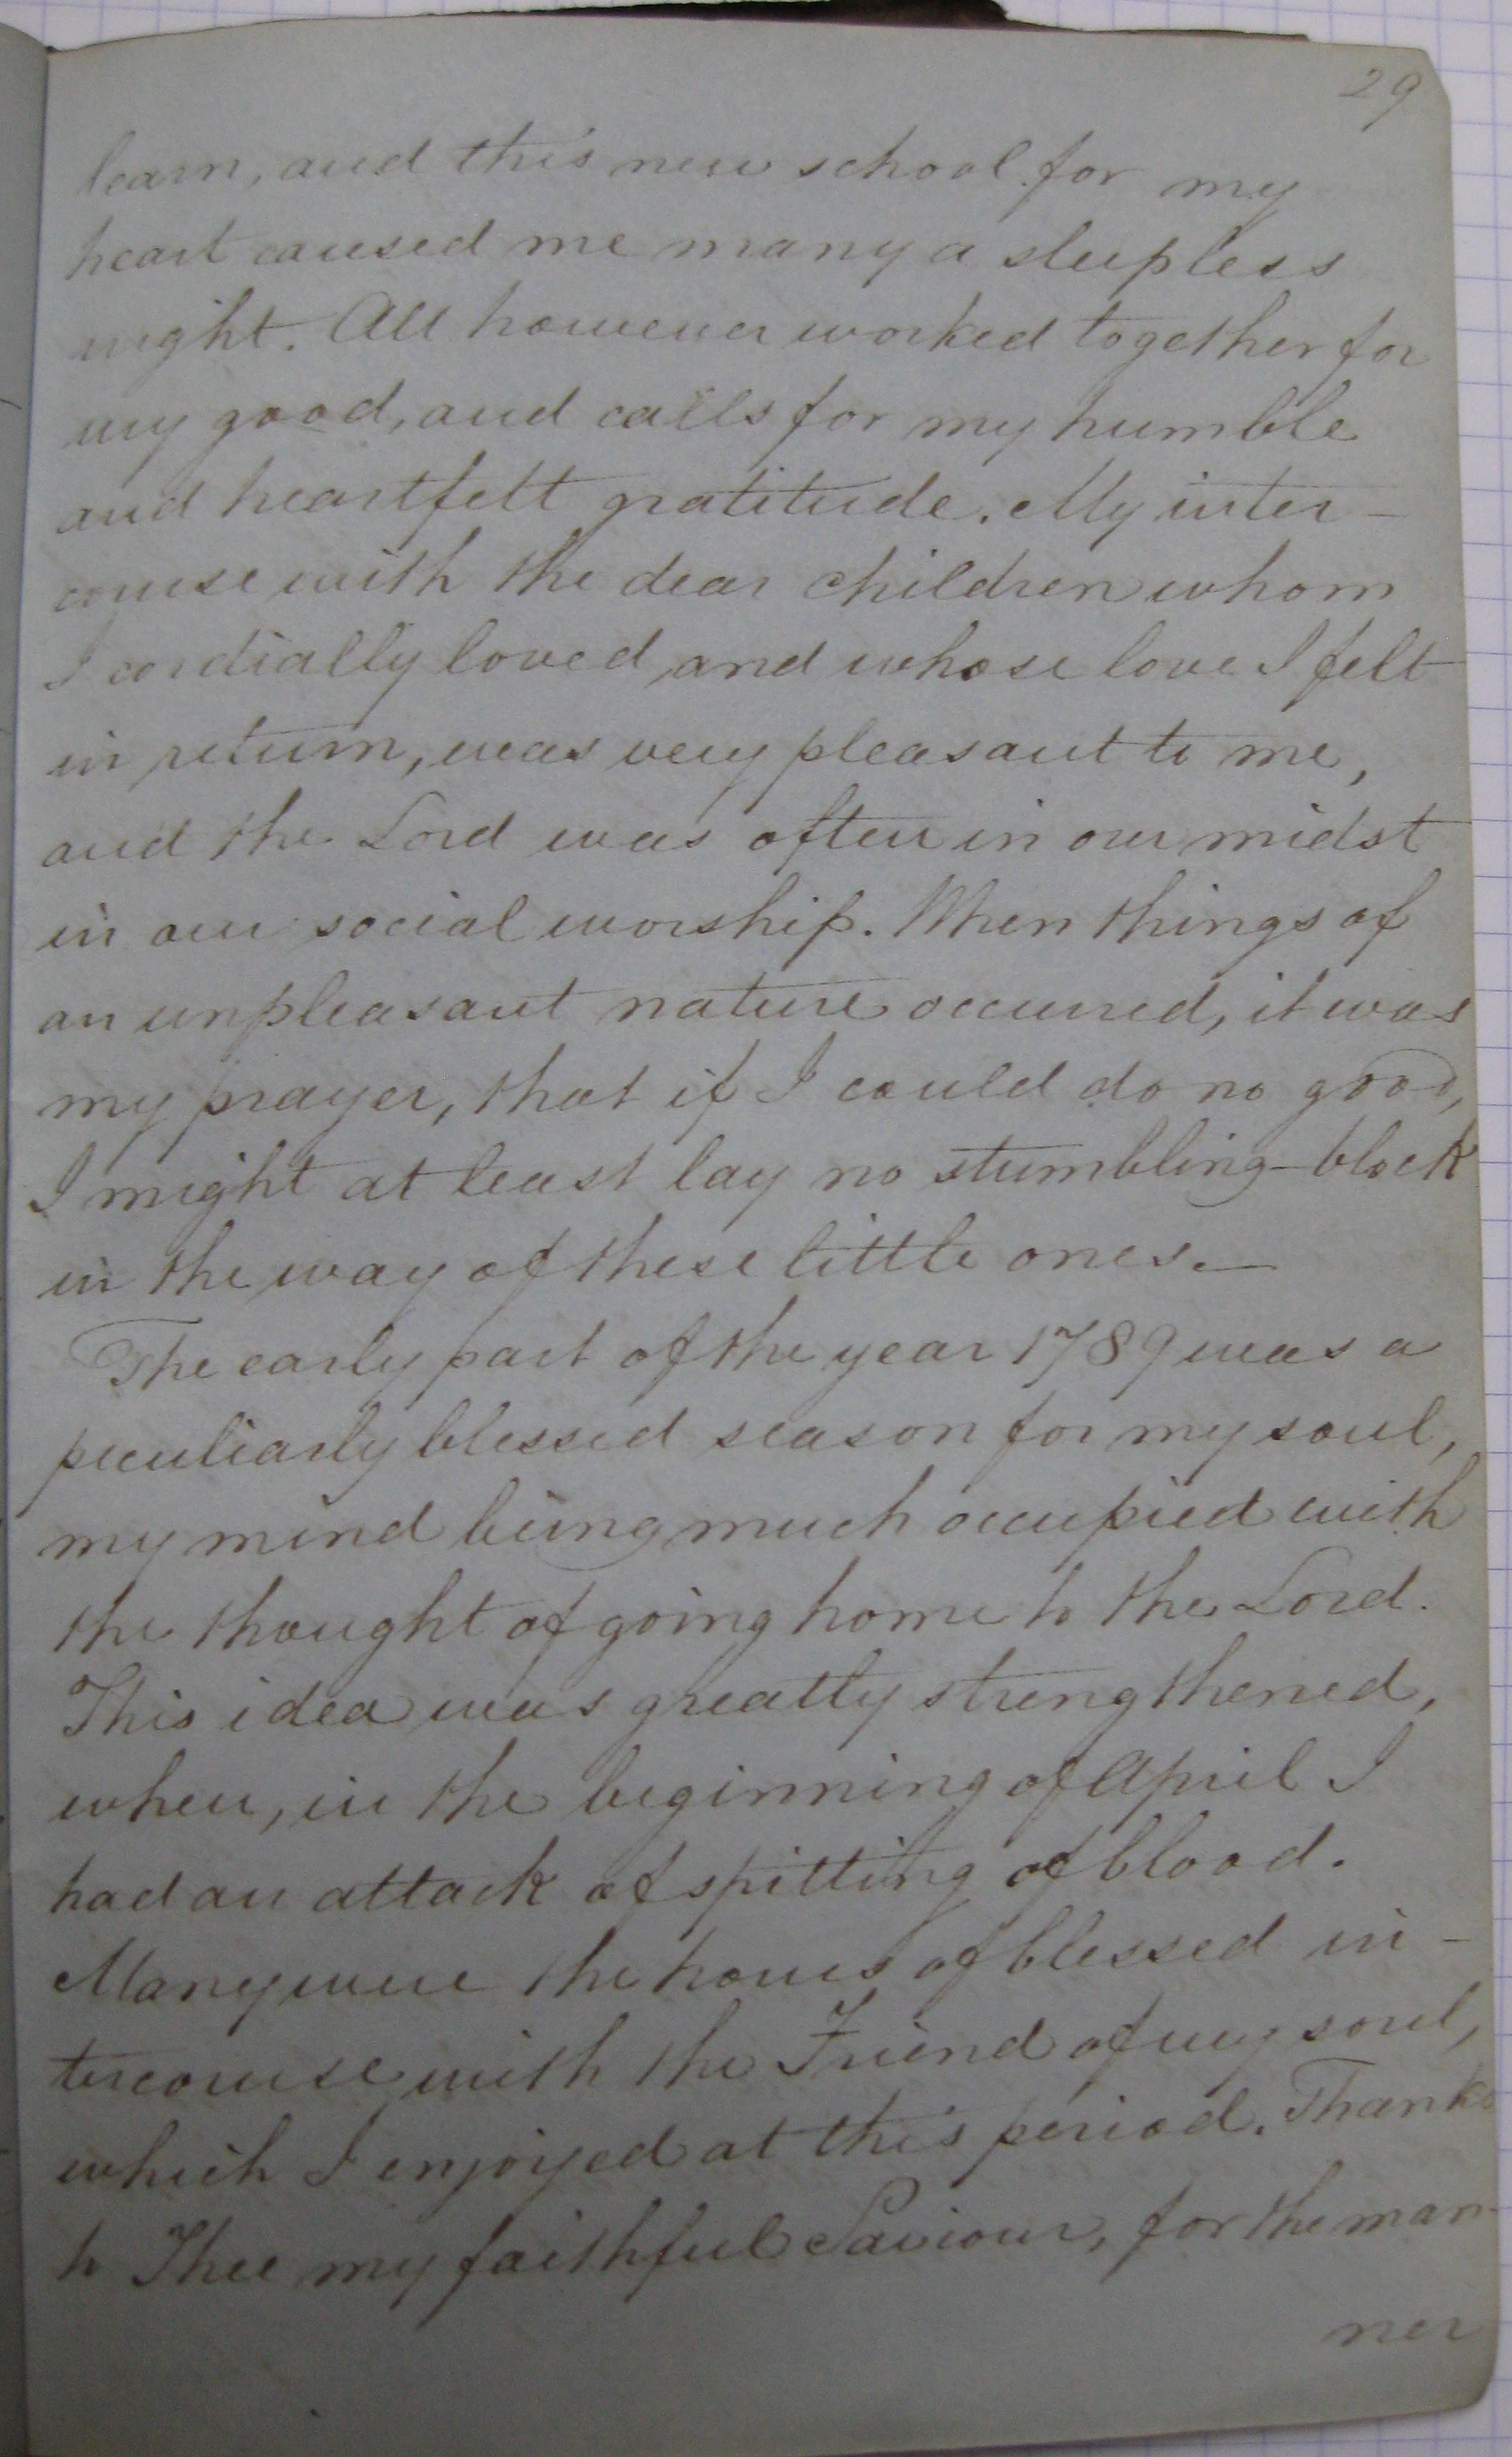 29
learn, and this new school for my
heart caused me many a sleepless
night. All however worked together for
my good, and calls for my humble
and heartfelt gratitude. My inter-
course with the dear children whom
I cordially loved and whose love I felt
in return, was very pleasant to me,
and the Lord was often in our midst
in our social worship. When things of
an unpleasant nature occurred, it was
my prayer, that if I could do no good,
I might at least lay no stumbling-block
in the way of these little ones.—
The early part of the year 1789 was a
peculiarly blessed season for my soul,
my mind being much occupied with
the thought of going home to the Lord.
This idea was greatly strengthened,
when, in the beginning of April I
had an attack of spitting of blood.
Many were the hours of blessed in-
tercourse with the Friend of my soul,
which I enjoyed at this period. Thanks
to Thee my faithful Saviour, for the man-
ner